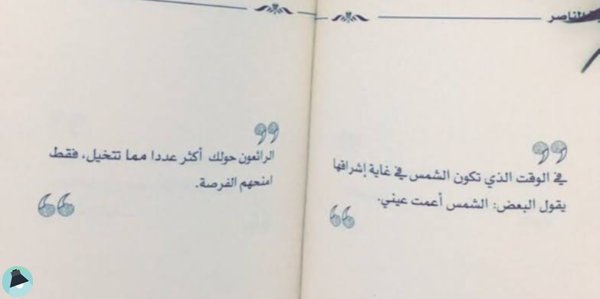 الناصر
في الوقت الذي تكون الشمس في غاية إشراقها
يقول البعض: الشمس أعمت عيني.
الرائعون حولك أكثر عددا مما تتخيل، فقط
امنحهم الفرصة.